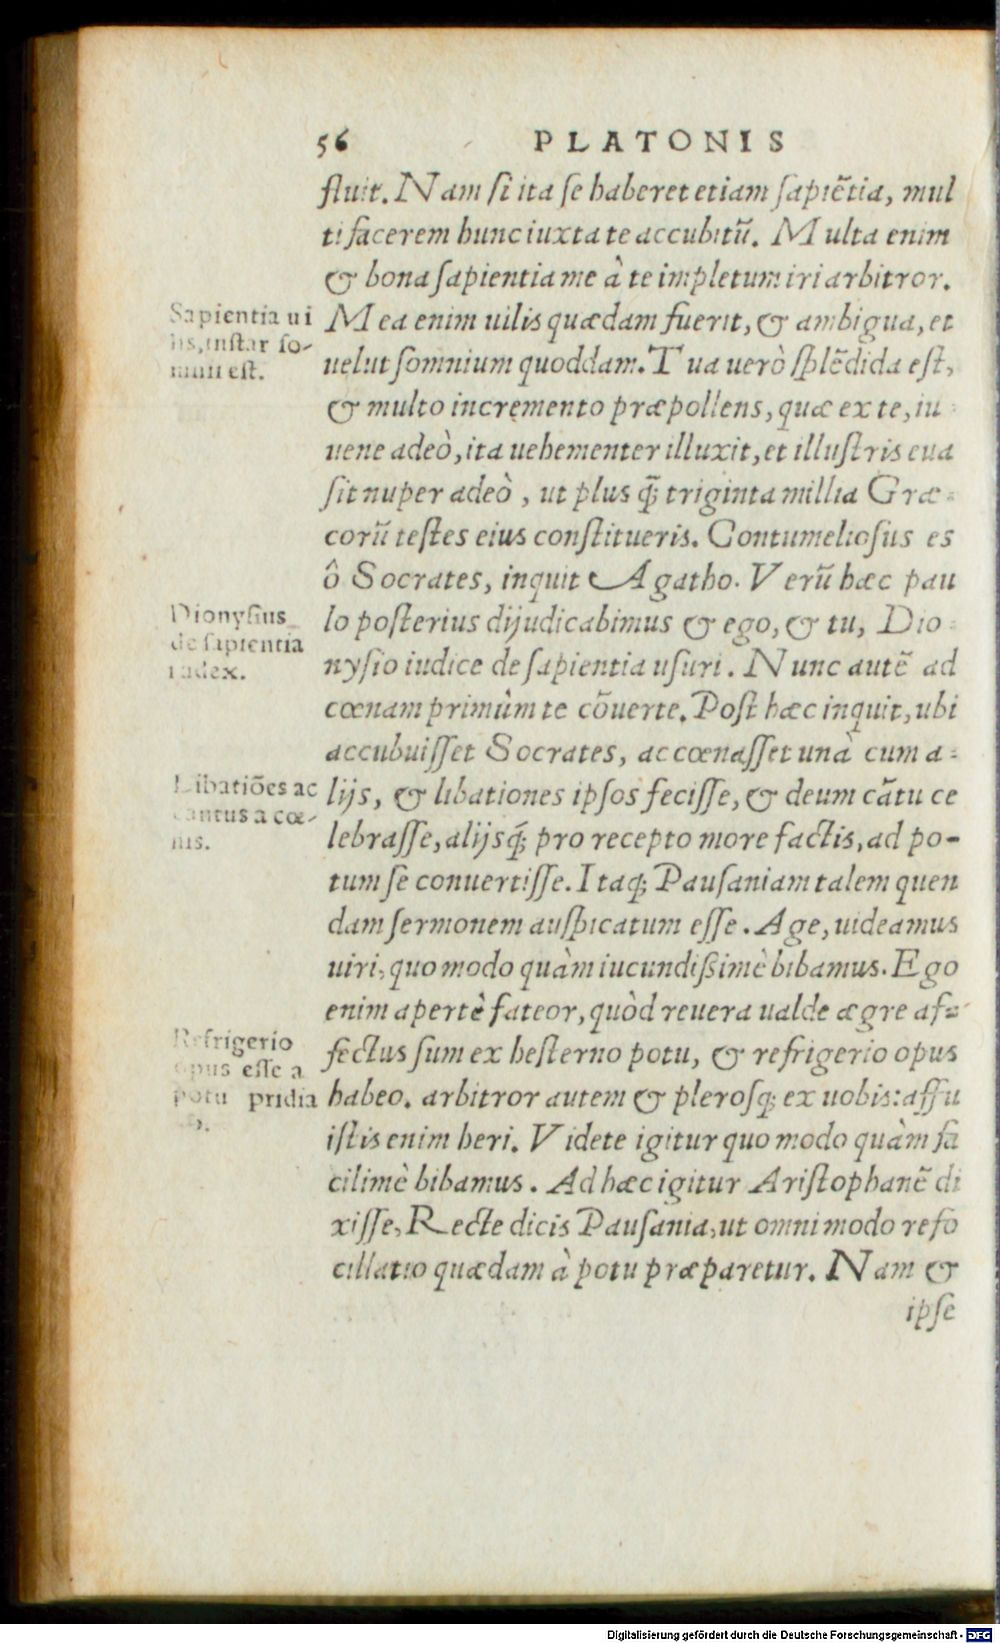 56 PLATONIS
fluit. Nam si ita se haberet etiam sapiẽtia, mul
ti facerem hunc iuxta te accubitũ. Multa enim
& bona sapientia me à te impletum iri arbitror.
Mea enim uilis quædam fuerit, & ambigua, et
uelut somnium quoddam. Tua uerò splẽdida est,
& multo incremento præpollens, quæ ex te, iu
uene adeò, ita uehementer illuxit, et illustris eua
sit nuper adeò, ut plus q̃ triginta millia Græ-
corũ testes eius constitueris. Contumeliosus es
ô Socrates, inquit Agatho. Verũ hæc pau
lo posterius dijudicabimus & ego, & tu, Dio-
nysio iudice de sapientia usuri. Nunc autẽ ad
cœnam primùm te cõuerte. Post hæc inquit, ubi
accubuisset Socrates, ac cœnasset unà cum a-
lijs, & libationes ipsos fecisse, & deum cãtu ce
lebrasse, alijsq́; pro recepto more factis, ad po-
tum se conuertisse. Itaq; Pausaniam talem quen
dam sermonem auspicatum esse. Age, uideamus
uiri, quo modo quàm iucundißimè bibamus. Ego
enim apertè fateor, quòd reuera ualde ægre af-
fectus sum ex hesterno potu, & refrigerio opus
habeo. arbitror autem & plerosq; ex uobis: affu
istis enim heri. Videte igitur quo modo quàm fa
cilimè bibamus. Ad hæc igitur Aristophanẽ di
xisse, Recte dicis Pausania, ut omni modo refo
cillatio quædam à potu præparetur. Nam &
ipse
Sapientia ui
lis, instar so-
mnii est.
Dionysius
de sapientia
iudex.
Libatiões ac
cantus a cœ-
nis.
Refrigerio
opus esse a
potu pridia
Digitalisierung gefördert durch die Deutsche Forschungsgemeinschaft - DFG